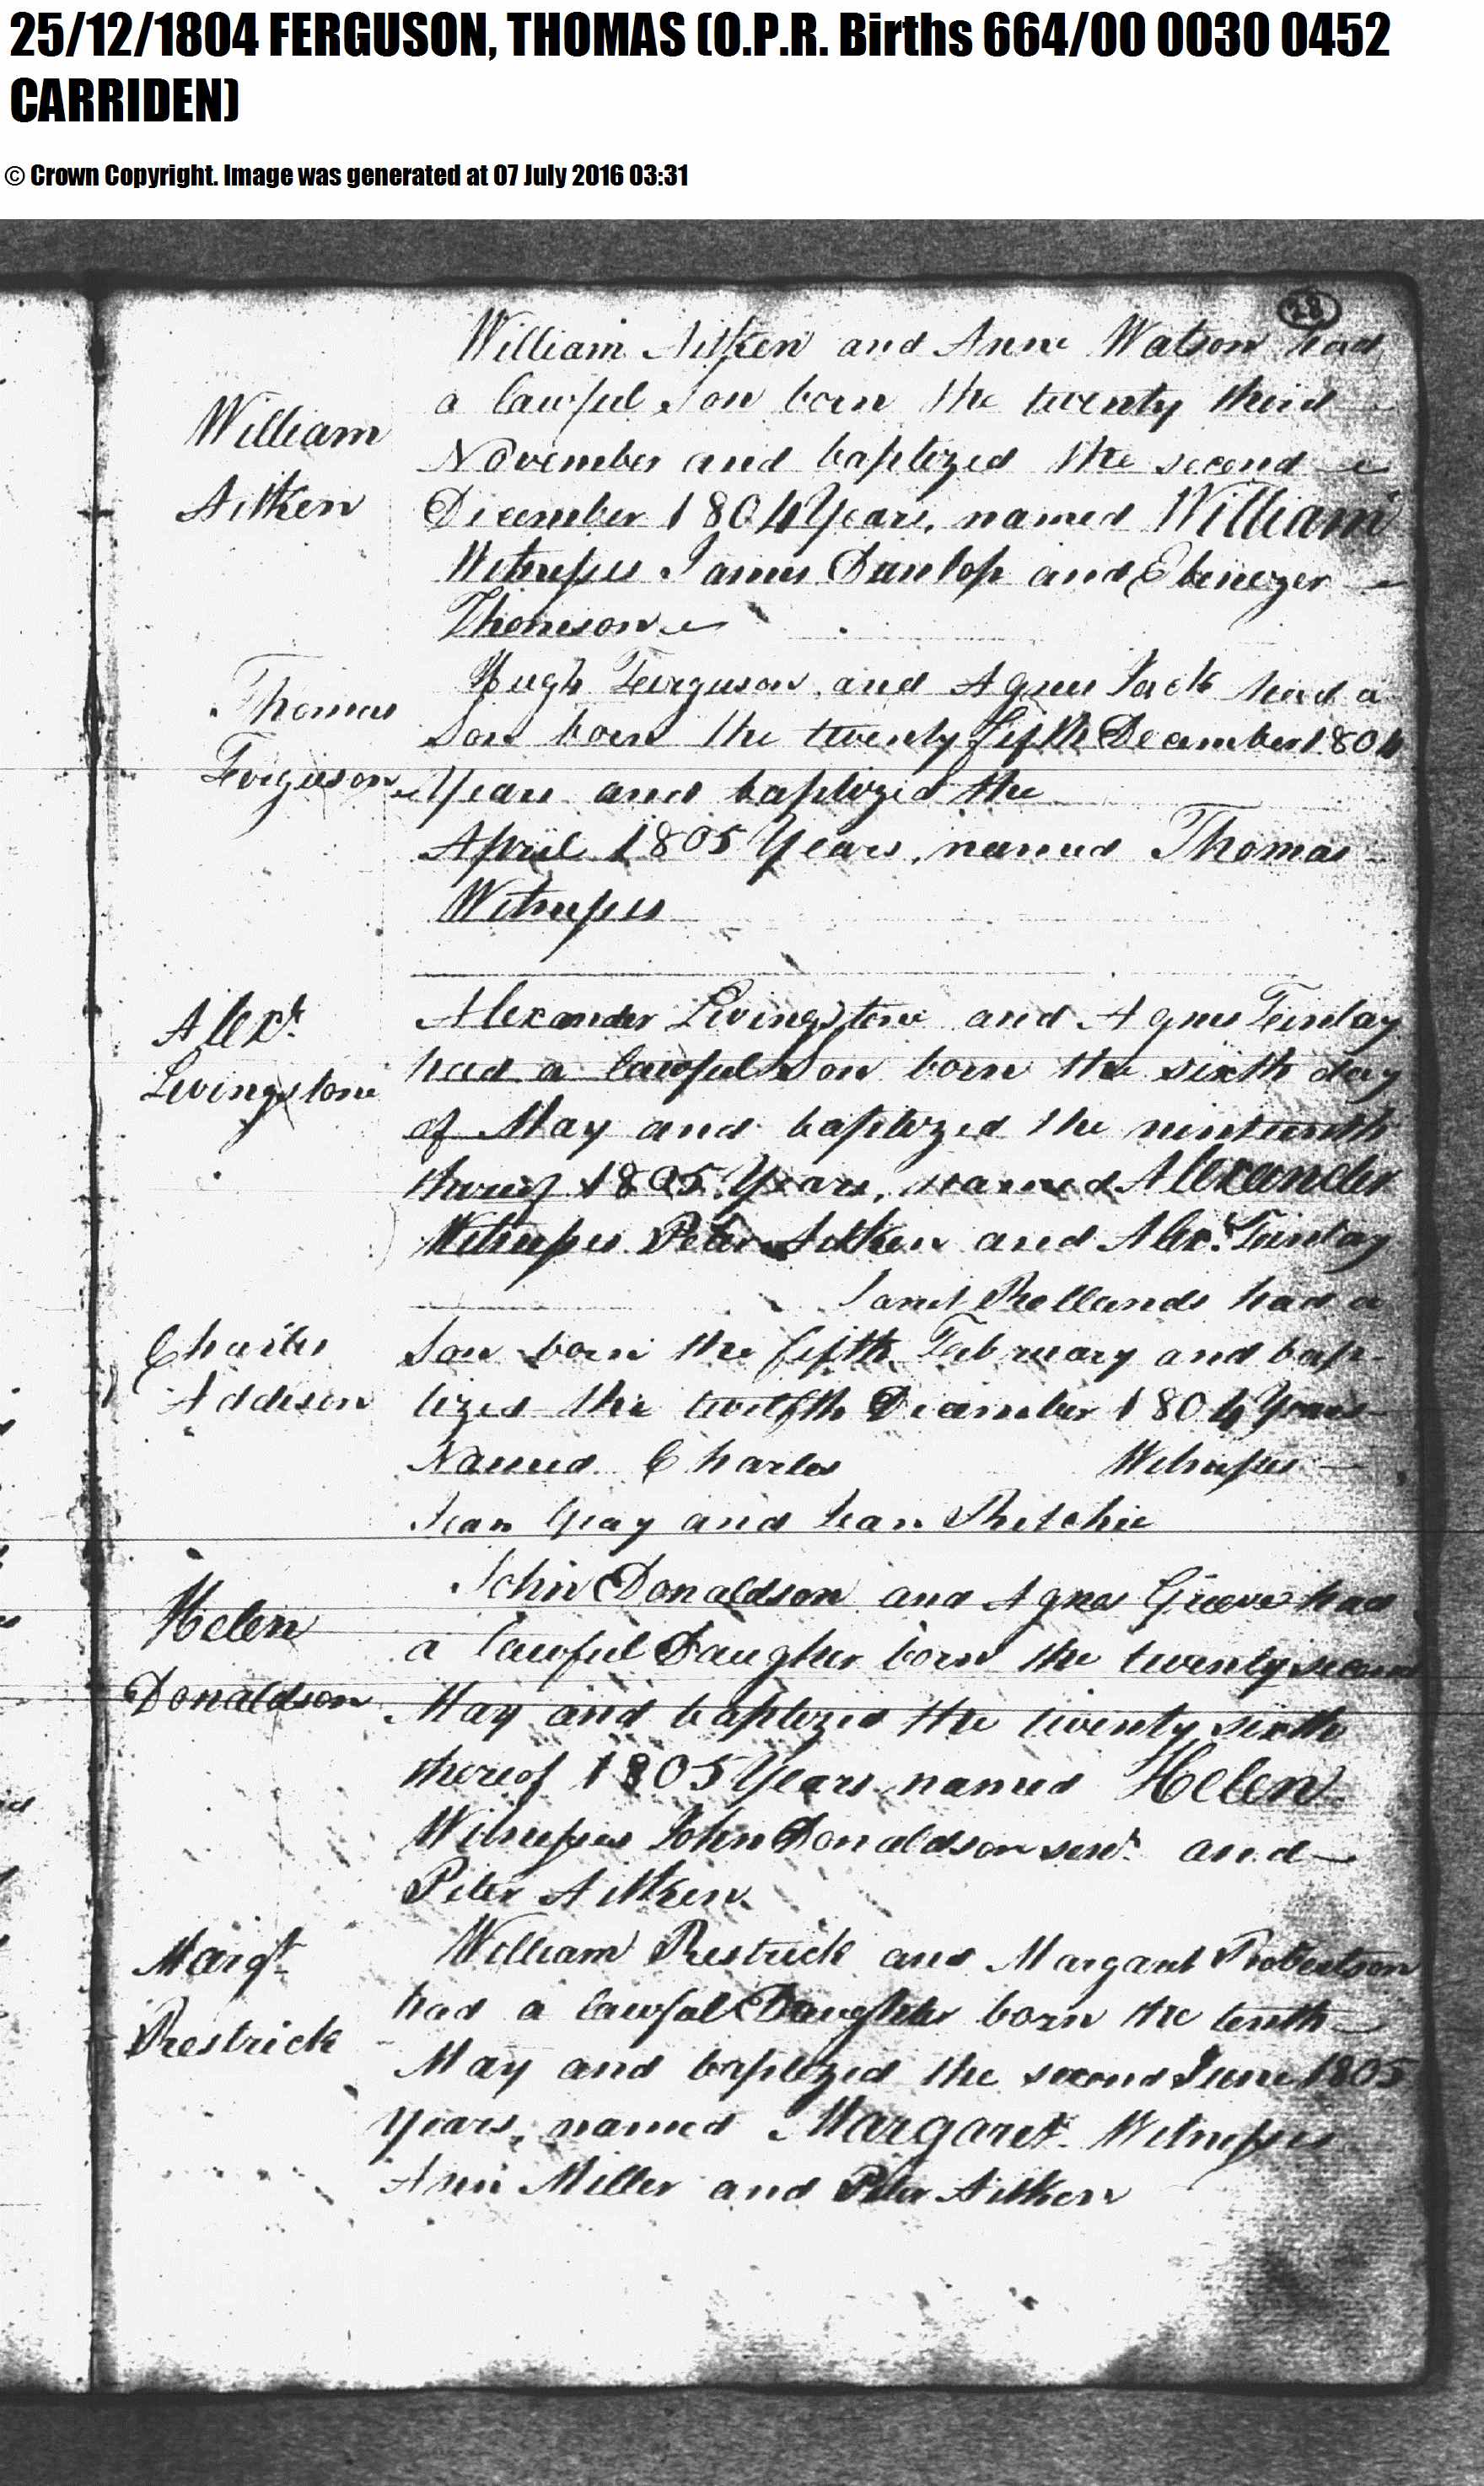 25/12/1804 FERGUSON, THOMAS (O.P.R. Births 664/00 0030 0452
CARRIDEN)
© Crown Copyright. Image was generated at 07 July 2016 03:31
28
William Aitken and Anne Watson had
a lawful Son born the twenty third
William
November and baptized the second
Aitken
December 1804 Years, named William
Witnesses James Dunlop and Ebenezer
Thomson
Hugh Ferguson and Agnes Jack had a
Thomas
Son born the twenty fifth December 1804
Ferguson
Years and baptized the
April 1805 Years, named Thomas
Witnesses
Alexander Livingstone and Agnes Finlay
Alexr.
had a lawful Son born the sixth day
Livingstone
of May and baptized the ninteenth
thereof 1805 Years, named Alexander
Witnesses Peter Aitken and Alexr. Finlay
Janet Rollands had a
Charles
Son born the fifth February and bap-
Addison
tized the twelfth December 1804 Years
Named Charles Witnesses
Jean Gray and Jean Ritchie
John Donaldson and Agnes Grieve had
Helen
a lawful Daughter born the twenty second
Donaldson
May and baptized the twenty sixth
thereof 1805 Years named Helen
Witnesses John Donaldson senr. and
Peter Aitken
William Restrick and Margaret Robertson
Margt.
had a lawful Daughter born the tenth
Restrick
May and baptized the second June 1805
Years, named Margaret. Witnesses
Ann Miller and Peter Aitken